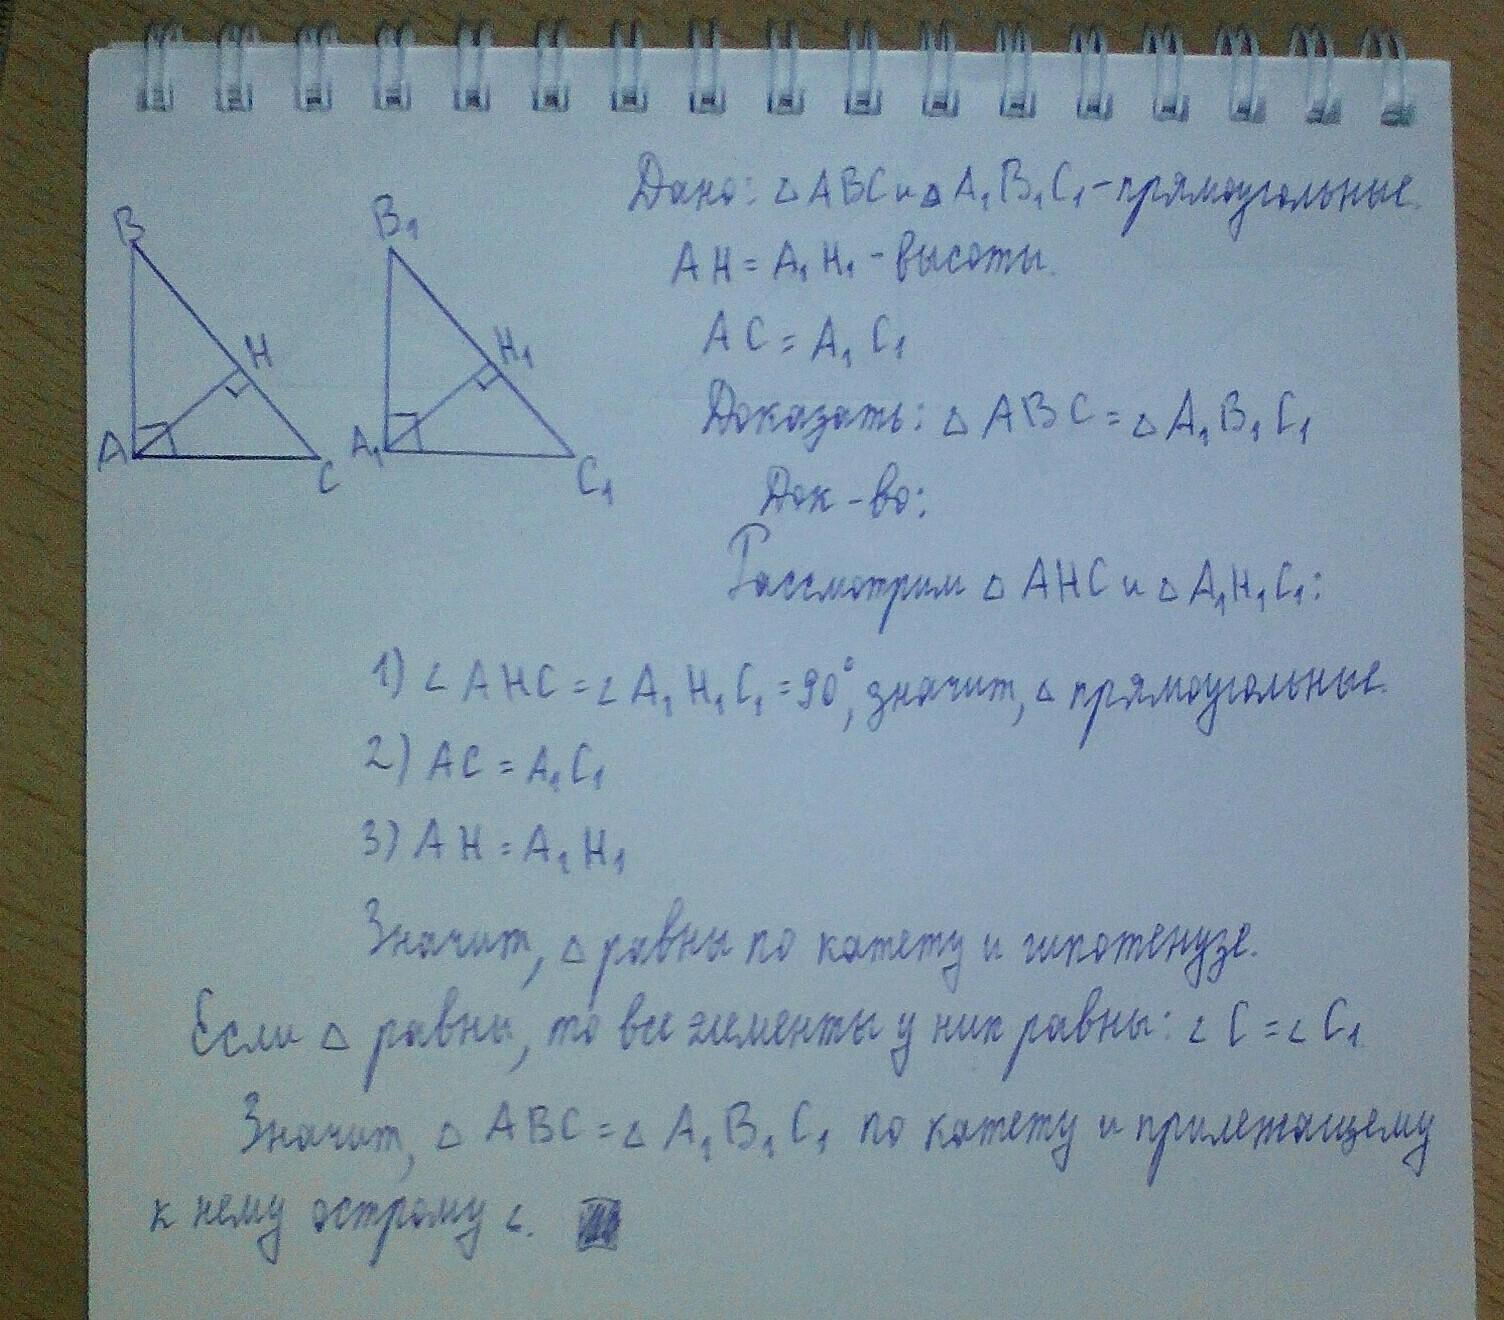 Дано: △ ABC и △ A₁B₁C₁ - прямоугольные.
AH = A₁H₁ - высоты.
AC = A₁C₁
Доказать: △ ABC = △ A₁B₁C₁
Док-во:
Рассмотрим △ AHC и △ A₁H₁C₁:
1) ∠ AHC = ∠ A₁H₁C₁ = 90°, значит, △ прямоугольные.
2) AC = A₁C₁
3) AH = A₁H₁
Значит, △ равны по катету и гипотенузе.
Если △ равны, то все элементы у них равны: ∠ C = ∠ C₁
Значит, △ ABC = △ A₁B₁C₁ по катету и прилежащему
к нему острому ∠.
B
H
A
C
B₁
H₁
A₁
C₁